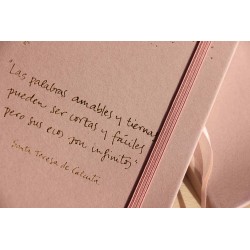 "Las palabras amables y tiernas
pueden ser cortas y fáciles
pero sus ecos son infinitos"
Santa Teresa de Calcuta